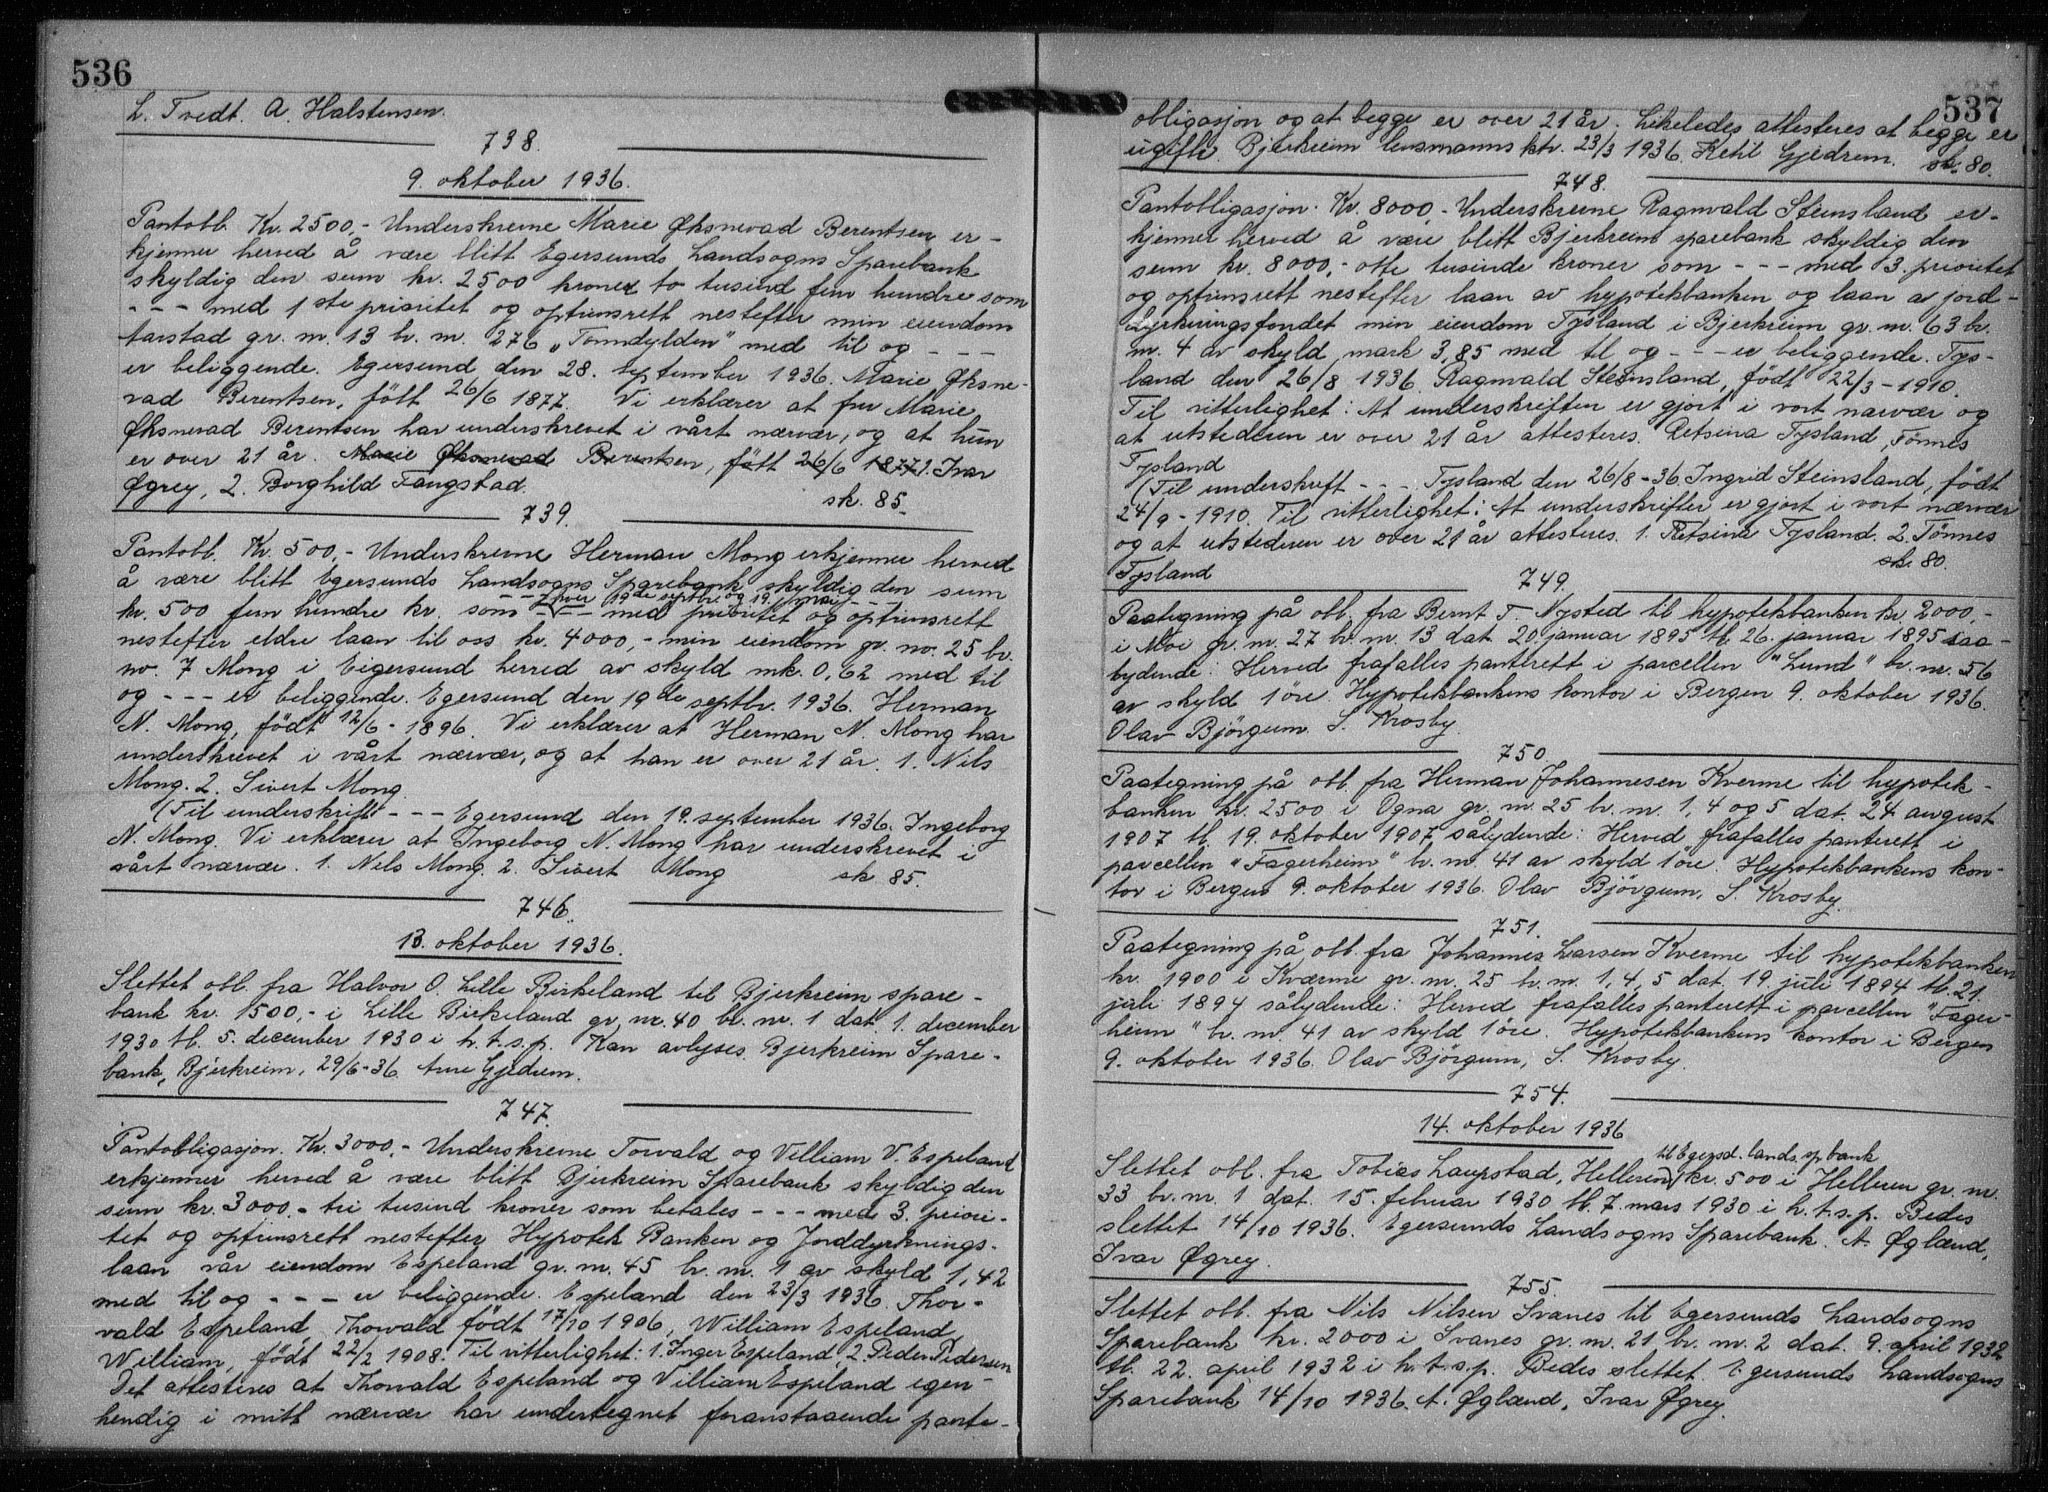 536
L. Tvedt. A. Halstensen.
738.
9. oktober 1936.
Pantobl. Kr. 2500,- Underskrevne Marie Øksnevad Berentsen er-
kjenner herved å være blitt Egersunds Landsogns Sparebank
skyldig den sum kr. 2500 kroner to tusind fem hundre som
- - - med 1ste prioritet og optrinsrett nestefter min eiendom
Aarstad gr. nr. 13 br. nr. 276 "Tonndylden" med til og - - -
er beliggende. Egersund den 28. september 1936. Marie Øksne-
vad Berentsen, født 26/6 1877. Vi erklærer at fru Marie
Øksnevad Berentsen har underskrevet i vårt nærvær, og at hun
er over 21 år. Marie Øksnevad Berentsen, født 26/6 1877. 1. Ivar
Øgrey, 2. Borghild Fangstad.
sk. 85.
739.
Pantobl. Kr. 500,- Underskrevne Herman Mong erkjenner herved
å være blitt Egersunds Landsogns Sparebank skyldig den sum
- - - hver 19de septbr. og 19. mai - - -
kr. 500 fem hundre kr. som - - - med prioritet og optrinsrett
nestefter eldre laan til oss kr. 4000,- min eiendom gr. no. 25 br.
no. 7 Mong i Eigersund herred av skyld mk. 0,62 med til
og - - - er beliggende. Egersund den 19de septbr. 1936. Herman
N. Mong, født 12/6 - 1896. Vi erklærer at Herman N. Mong har
underskrevet i vårt nærvær, og at han er over 21 år. 1. Nils
Mong. 2. Sivert Mong.
(Til underskrift - - - Egersund den 19. september 1936. Ingeborg
N. Mong. Vi erklærer at Ingeborg N. Mong har underskrevet i
vårt nærvær. 1. Nels Mong. 2. Sivert Mong
sk. 85.
746.
13. oktober 1936.
Slettet obl. fra Halvor O. Lille Birkeland til Bjerkreim spare-
bank kr. 1500,- i Lille Birkeland gr. nr. 40 br. nr. 1 dat. 1. december
1930 tl. 5. december 1930 i h.t.s.p. Kan avlyses. Bjerkreim Spare-
bank, Bjerkreim, 29/6-36 Arne Gjedrem.
747.
Pantobligasjon. Kr. 3000,- Underskrevne Torvald og Villiam V. Espeland
erkjenner herved å være blitt Bjerkreim Sparebank skyldig den
sum kr. 3000.- tri tusind kroner som betales - - - med 3. priori-
tet og optrinsrett nestefter Hypotek Banken og Jorddyrknings-
laan vår eiendom Espeland gr. nr. 45 br. nr. 1 av skyld 1,42
med til og - - - er beliggende. Espeland den 23/3 1936. Thor-
vald Espeland, Thorvald født 17/10 1906, William Espeland
William, født 22/2 1908. Til vitterlighet: 1. Inger Espeland, 2. Peder Pedersen
Det attesteres at Thorvald Espeland og Villiam Espeland egen-
hendig i mitt nærvær har undertegnet foranstaaende pante-
537
obligasjon og at begge er over 21 år. Likeledes attesteres at begge er
ugifte. Bjerkreim lensmanns ktr. 23/3 1936. Ketil Gjedrem. sk. 80.
748.
Pantobligasjon. Kr. 8000,- Underskrevne Ragnvald Steinsland er-
kjenner herved å være blitt Bjerkreim sparebank skyldig den
sum kr. 8000,- otte tusinde kroner som - - - med 3. prioritet
og optrinsrett nestefter laan av hypotekbanken og laan av jord-
dyrkningsfondet min eiendom Tysland i Bjerkreim gr. nr. 63 br.
nr. 4 av skyld mark 3,85 med til og - - - er beliggende. Tys-
land den 26/8 1936. Ragnvald Steinsland, født 22/3 - 1910.
Til vitterlighet: At underskriften er gjort i vort nærvær og
at utstederen er over 21 år attesteres. Retsina Tysland, Tønnes
Tysland
(Til underskrift - - - Tysland den 26/8-36. Ingrid Steinsland, født
24/9 - 1910. Til vitterlighet: At underskrifter er gjort i vort nærvær
og at utstederen er over 21 år attesteres. 1. Retsina Tysland. 2. Tönnes
Tysland
sk. 80.
749.
Paategning på obl. fra Bernt T. Nysted til hypotekbanken kr. 2000,-
i Moi gr. nr. 27 br. nr. 13 dat. 20. januar 1895 tl. 26. januar 1895 saa-
lydende: Herved frafalles panterett i parcellen "Lund" br. nr. 56
av skyld 1 öre. Hypotekbankens kontor i Bergen 9. oktober 1936.
Olav Björgum. S. Krosby.
750.
Paategning på obl. fra Herman Johannesen Kverme til hypotek-
banken kr. 2500 i Ogna gr. nr. 25 br. nr. 1, 4 og 5 dat. 24 august
1907 tl. 19. oktober 1907 sålydende: Herved frafalles panterett i
parcellen "Fagerheim" br. nr. 41 av skyld 1 öre. Hypotekbankens kon-
tor i Bergen 9. oktober 1936. Olav Björgum, S. Krosby.
751.
Paategning på obl. fra Johannes Larsen Kverme til hypotekbanken
kr. 1900 i Kværme gr. nr. 25 br. nr. 1, 4, 5 dat. 19. juli 1894 tl. 21.
juli 1894 sålydende: Herved frafalles panterett i parcellen "Fager-
heim" br. nr. 41 av skyld 1 öre. Hypotekbankens kontor i Bergen
9. oktober 1936. Olav Björgum, S. Krosby.
754.
14. oktober 1936
til Egersd. lands. sp.bank
Slettet obl. fra Tobias Laupstad, Helleren kr. 500 i Helleren gr. nr.
33 br. nr. 1 dat. 15. februar 1930 tl. 7. mars 1930 i h.t.s.p. Bedes
slettet 14/10 1936. Egersunds Landsogns Sparebank. A. Øglænd,
Ivar Øgrey.
755.
Slettet obl. fra Nils Nilsen Svanes til Egersunds Landsogns
Sparebank kr. 2000 i Svanes gr. nr. 21 br. nr. 2 dat. 9. april 1932
tl. 22. april 1932 i h.t.s.p. Bedes slettet. Egersunds Landsogns
Sparebank 14/10 1936. A. Øglænd, Ivar Øgrey.